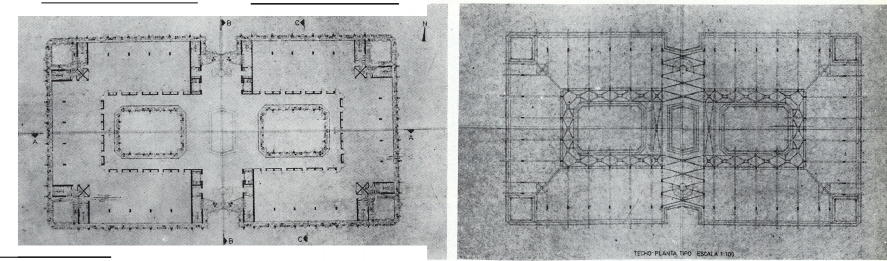 B
C
N
A
A
B
C
TECHO PLANTA TIPO ESCALA 1:100